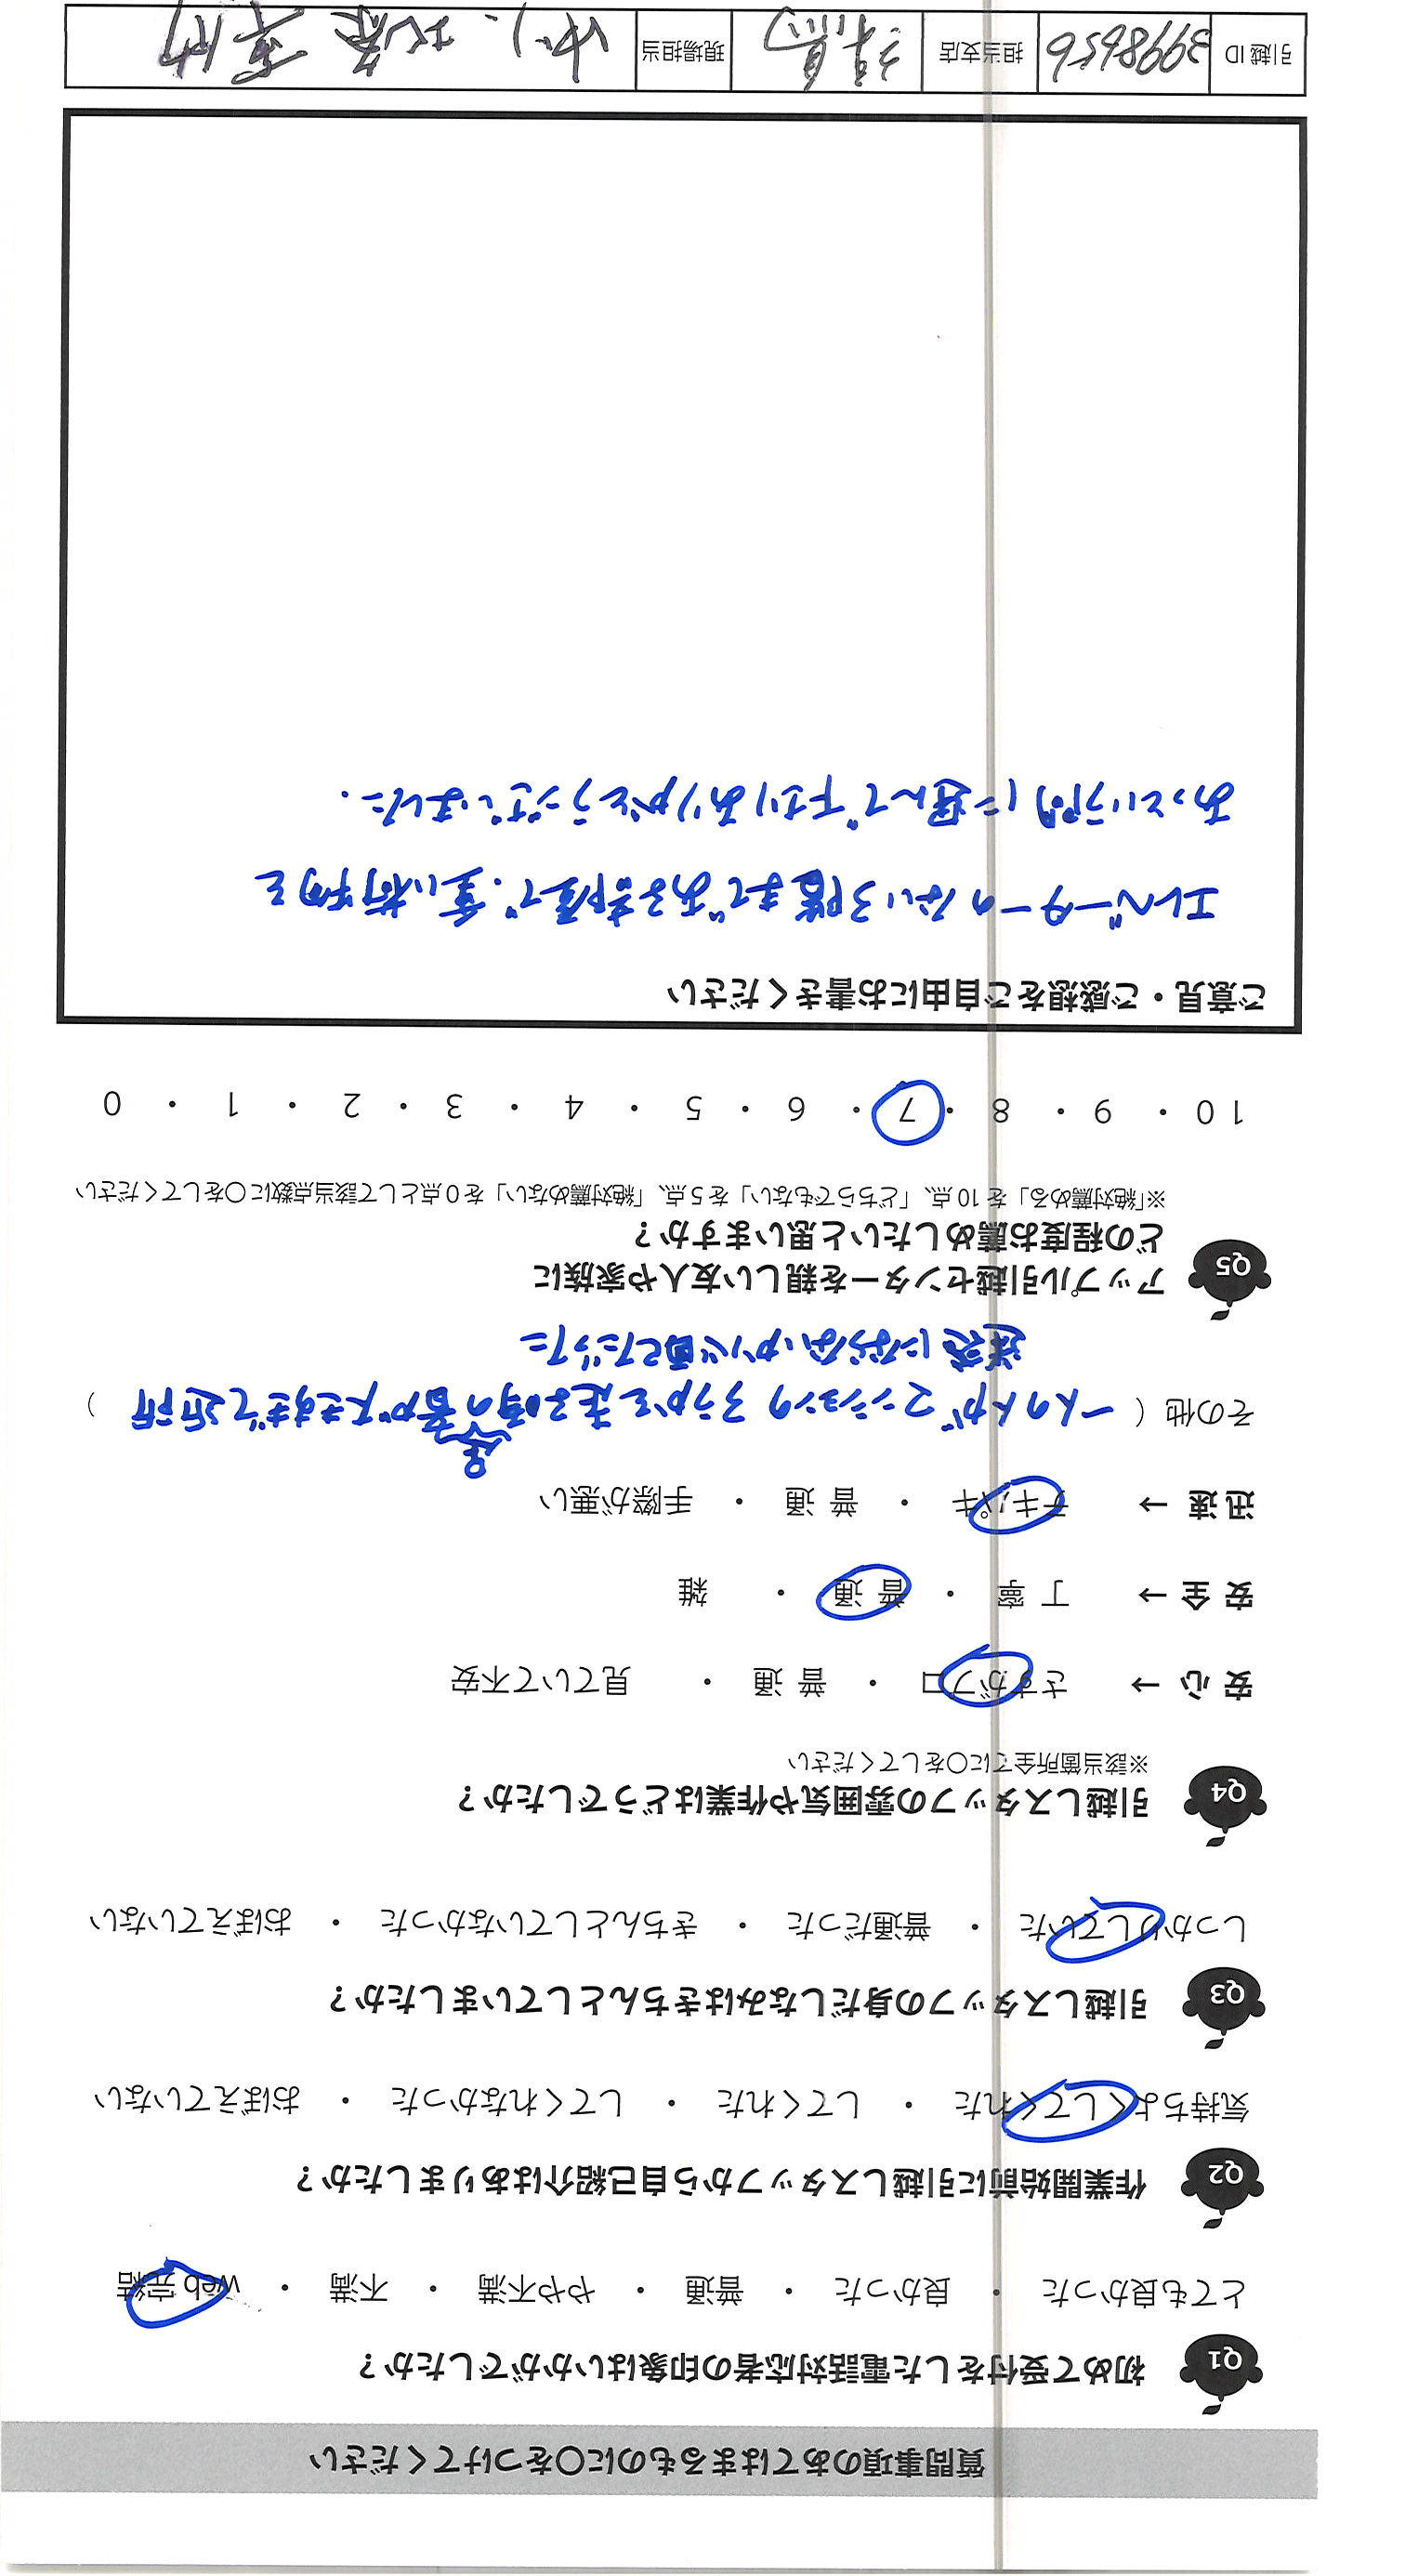 質問事項のあてはまるものに〇をつけてください
Q1 初めて受付をした電話対応者の印象はいかがでしたか？
とても良かった ・ 良かった ・ 普通 ・ やや不満 ・ 不満 ・ web 完結
Q2 作業開始前に引越しスタッフから自己紹介はありましたか？
気持ちよくしてくれた ・ してくれた ・ してくれなかった ・ おぼえていない
Q3 引越しスタッフの身だしなみはきちんとしていましたか？
しっかりしていた ・ 普通だった ・ きちんとしていなかった ・ おぼえていない
Q4 引越しスタッフの雰囲気や作業はどうでしたか？
※該当箇所全てに〇をしてください
安 心 → さすがプロ ・ 普 通 ・ 見ていて不安
安 全 → 丁 寧 ・ 普 通 ・ 雑
迅 速 → テキパキ ・ 普 通 ・ 手際が悪い
足
その他（ 一人の人がマンションのろうかを走る時の音が大きすぎて近所 ）
迷惑にならないか心配だった
Q5 アップル引越センターを親しい友人や家族に
どの程度お薦めしたいと思いますか？
※「絶対薦める」を 10 点、「どちらでもない」を 5 点、「絶対薦めない」を 0 点として該当点数に〇をしてください
10 ・ 9 ・ 8 ・ 7 ・ 6 ・ 5 ・ 4 ・ 3 ・ 2 ・ 1 ・ 0
ご意見・ご感想をご自由にお書きください
エレベーターのない3階まである部屋で、重い荷物を
あっという間に運んで下さりありがとうございました.
引越 ID 3998656 担当支店 練馬 現場担当